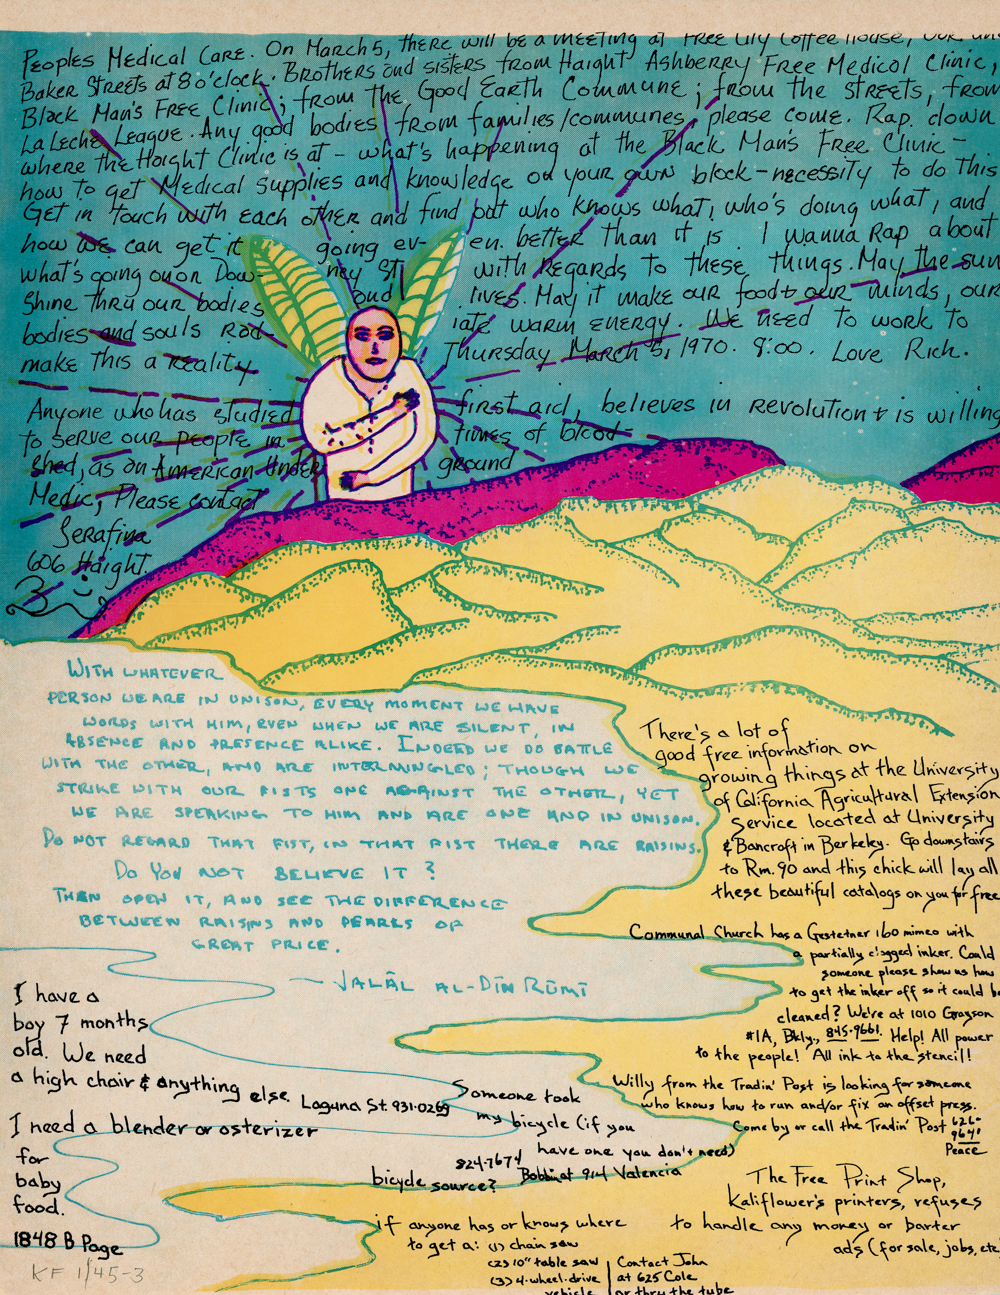 Peoples Medical Care. On March 5, there will be a meeting at Free City Coffee House,
Baker Streets at 8 o'clock. Brothers and sisters from Haight Ashberry Free Medical Clinic,
Black Man's Free Clinic; from the Good Earth Commune; from the streets, from
La Leche League. Any good bodies from families/communes, please come. Rap down
where the Haight Clinic is at - what's happening at the Black Man's Free Clinic -
how to get Medical supplies and knowledge on your own block - necessity to do this
Get in touch with each other and find out who knows what, who's doing what, and
how we can get it going ev- en better than it is. I wanna Rap about
what's going on on Dow- ney St. with regards to these things. May the sun
Shine thru our bodies and lives. May it make our food & our minds, our
bodies and souls Rad iate warm energy. We need to work to
make this a reality Thursday March 5, 1970. 8:00. Love Rich.
Anyone who has studied first aid, believes in revolution & is willing
to serve our people in times of blood-
shed, as an American Under ground
Medic, Please contact
Serafina
606 Haight.
With whatever
person we are in unison, every moment we have
words with him, even when we are silent, in
absence and presence alike. Indeed we do battle
with the other, and are intermingled; though we
strike with our fists one against the other, yet
we are speaking to him and are one and in unison.
Do not regard that fist, in that fist there are raisins.
Do you not believe it?
Then open it, and see the difference
between raisins and pearls of
great price.
— Jalāl al-Dīn Rūmī
There's a lot of
good free information on
growing things at the University
of California Agricultural Extension
Service located at University
& Bancroft in Berkeley. Go downstairs
to Rm. 90 and this chick will lay all
these beautiful catalogs on you for free
Communal Church has a Gestetner 160 mimeo with
a partially clogged inker. Could
someone please show us how
to get the inker off so it could be
cleaned? We're at 1010 Grayson
#1A, Bkly., 845-9661. Help! All power
to the people! All ink to the stencil!
Willy from the Tradin' Post is looking for someone
who knows how to run and/or fix an offset press.
Come by or call the Tradin' Post 626-
9640
Peace
The Free Print Shop,
Kaliflower's printers, refuses
to handle any money or barter
ads (for sale, jobs, etc
I have a
boy 7 months
old. We need
a high chair & anything else. Laguna St. 931-0269
I need a blender or osterizer
for
baby
food.
1848 B Page
Someone took
my bicycle (if you
have one you don't need)
824-7674 Bobbi at 914 Valencia
bicycle source?
if anyone has or knows where
to get a: (1) chain saw
(2) 10" table saw
(3) 4-wheel-drive
vehicle
Contact John
at 625 Cole
or thru the tube
KF 1/45-3